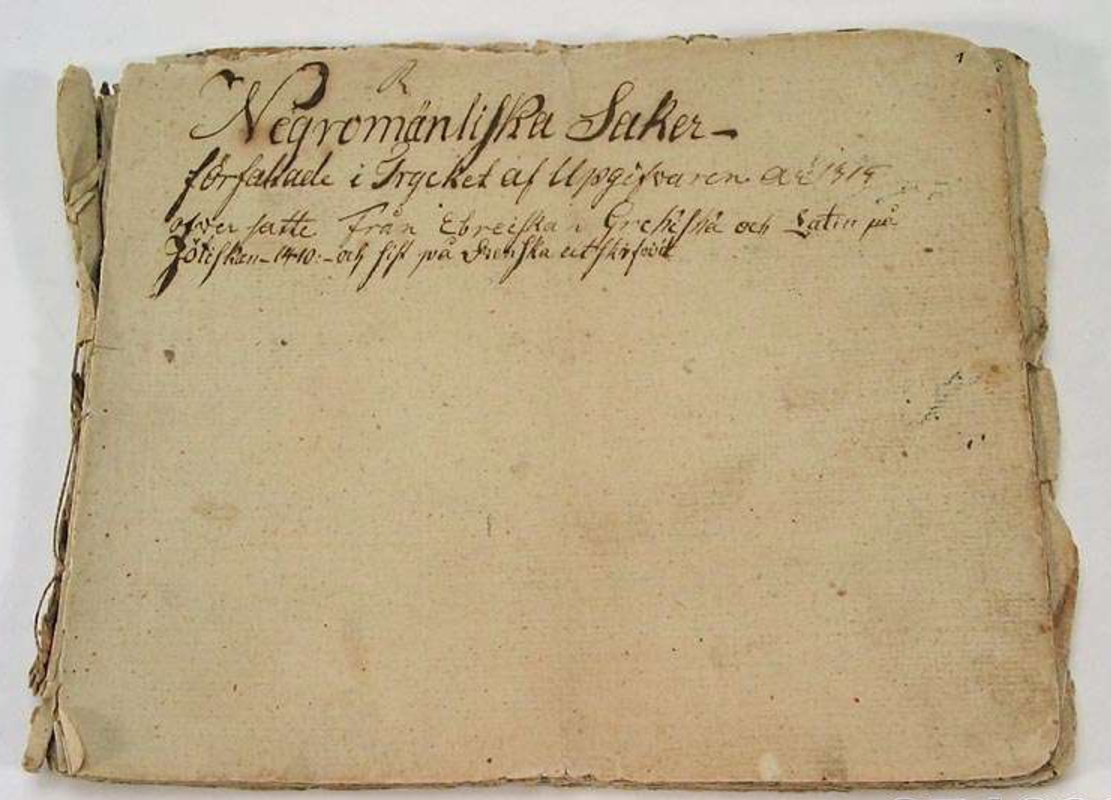 Negromänliska Saker -
författade i Trycket af Uppgifvaren
öfver satte Från Ebreiska Grekiska och Latin på
Jötiskan - 1410 :- och sist på Svenska utskrifvit